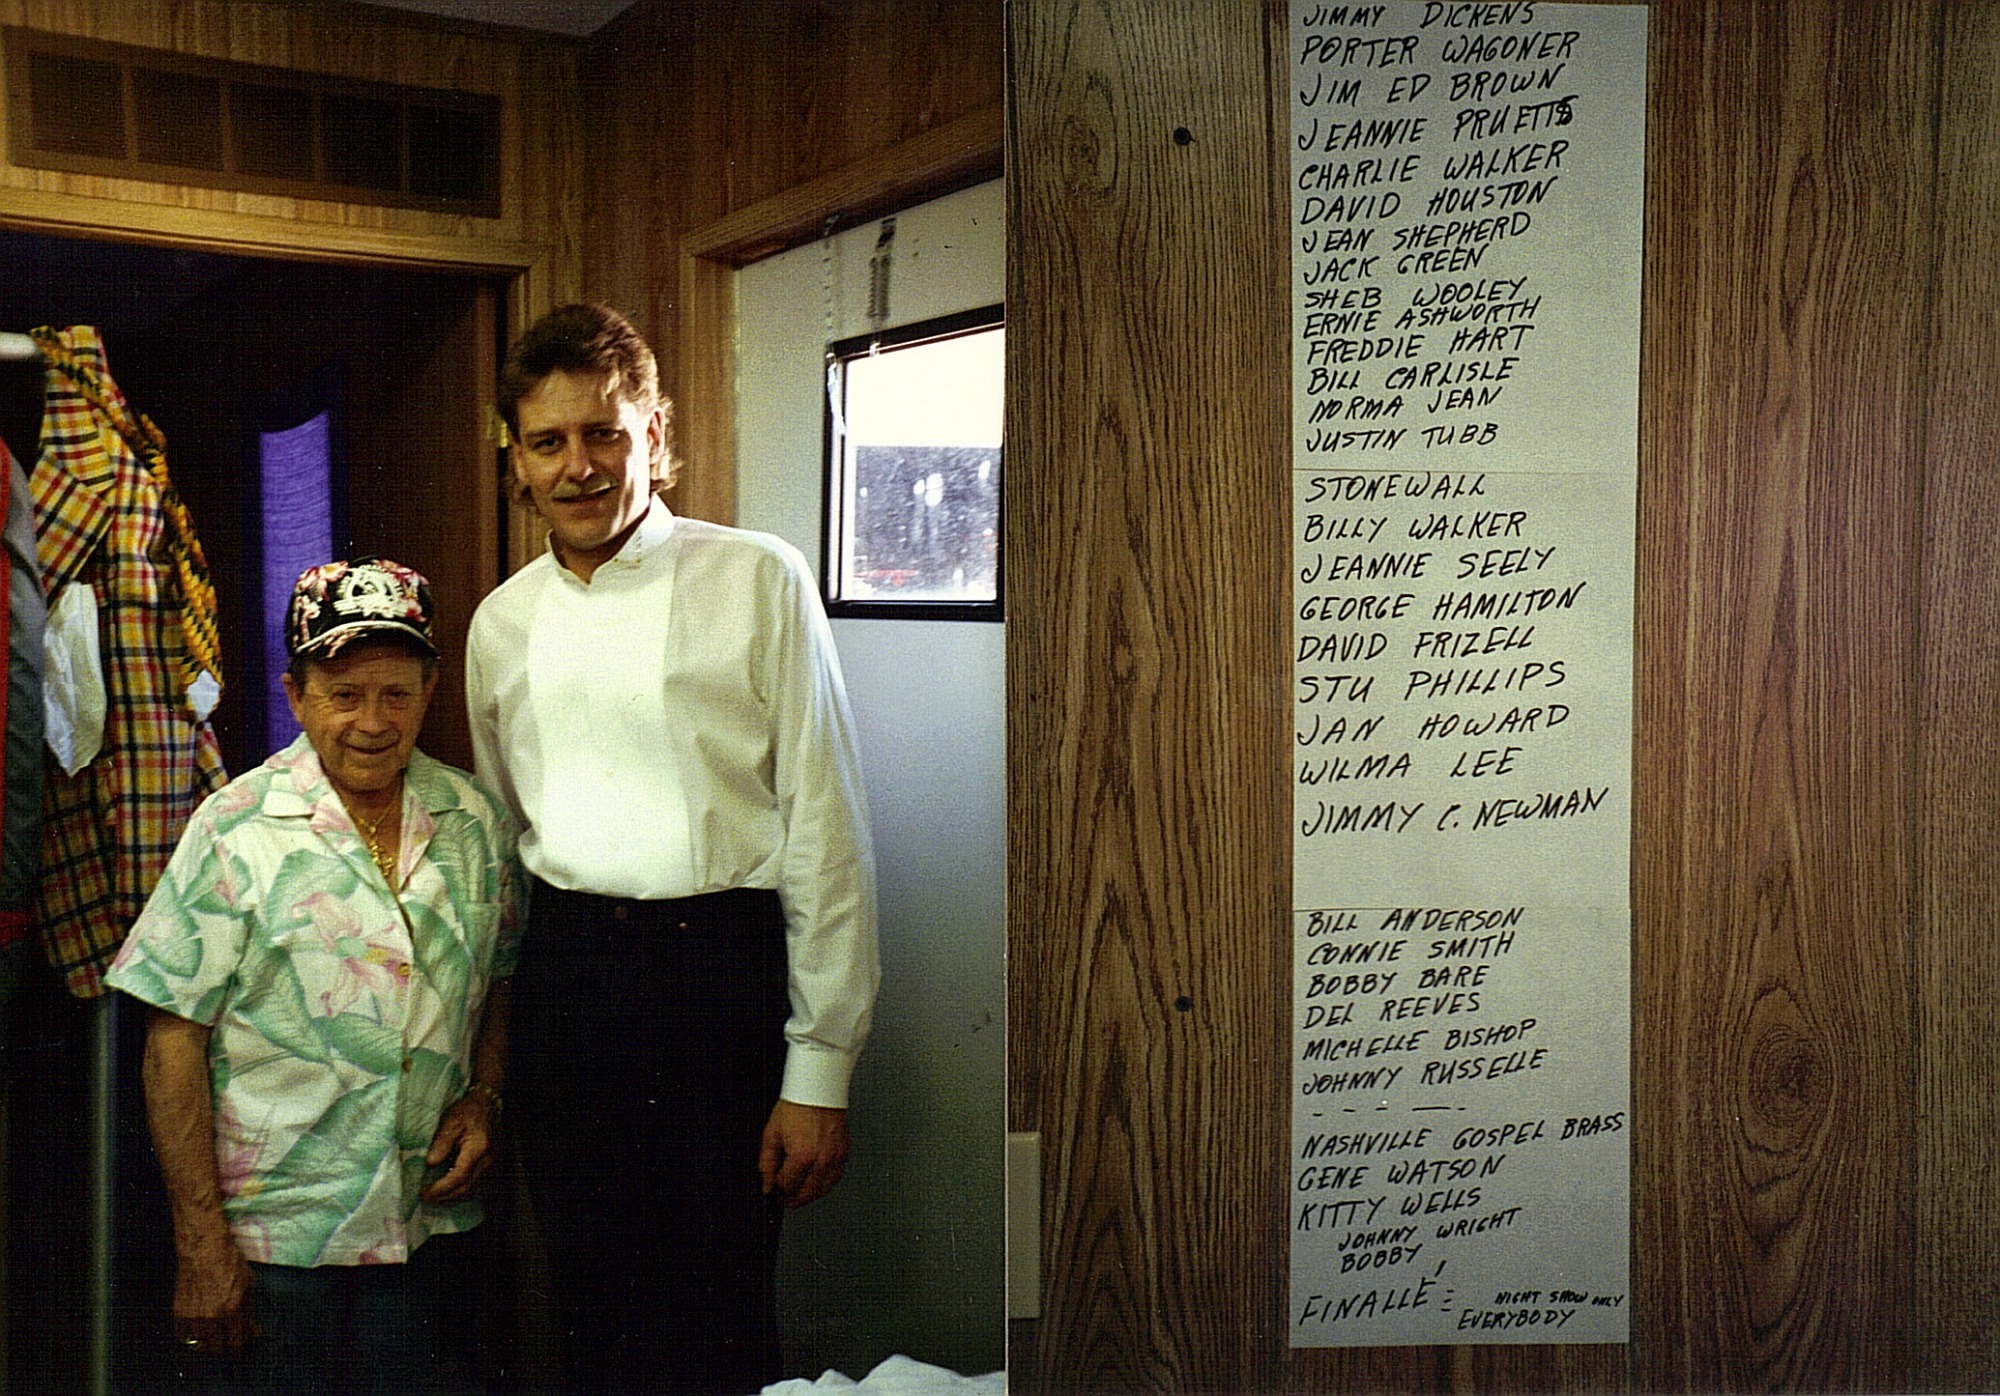 JIMMY DICKENS
PORTER WAGONER
JIM ED BROWN
JEANNIE PRUETT
CHARLIE WALKER
DAVID HOUSTON
JEAN SHEPHERD
JACK GREEN
SHEB WOOLEY
ERNIE ASHWORTH
FREDDIE HART
BILL CARLISLE
NORMA JEAN
JUSTIN TUBB
STONEWALL
BILLY WALKER
JEANNIE SEELY
GEORGE HAMILTON
DAVID FRIZELL
STU PHILLIPS
JAN HOWARD
WILMA LEE
JIMMY C. NEWMAN
BILL ANDERSON
CONNIE SMITH
BOBBY BARE
DEL REEVES
MICHELLE BISHOP
JOHNNY RUSSELLE
- - - - -
NASHVILLE GOSPEL BRASS
GENE WATSON
KITTY WELLS
JOHNNY WRIGHT
BOBBY '
FINALLE : NIGHT SHOW ONLY
EVERYBODY